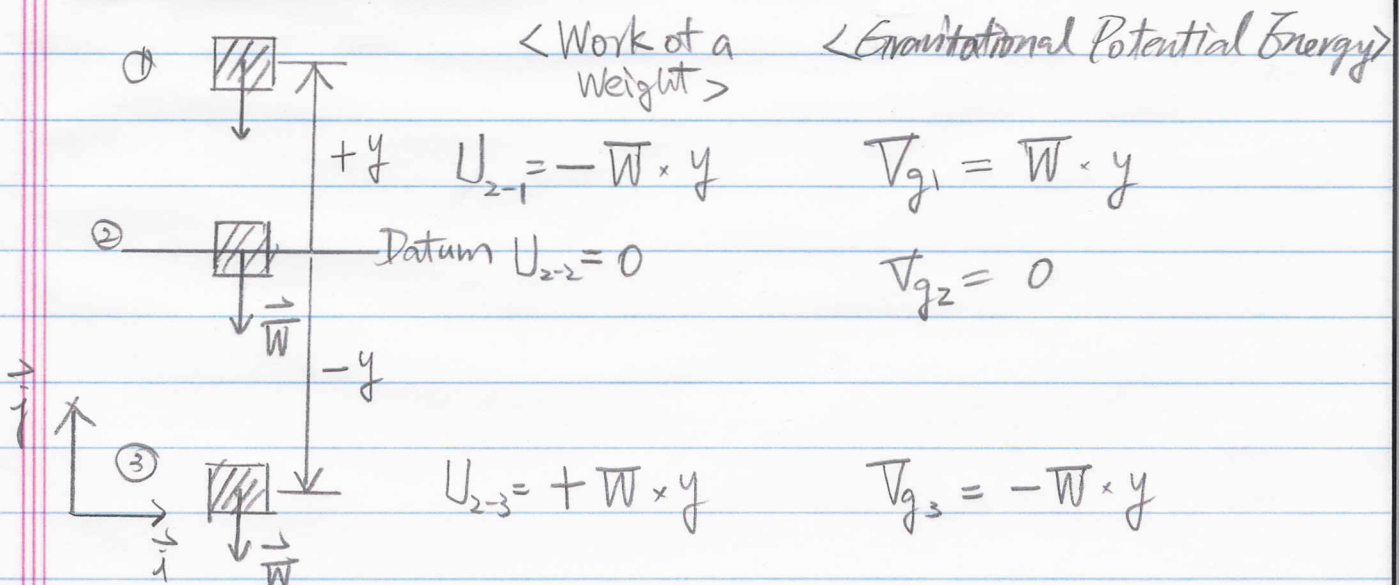 ① <Work of a <Gravitational Potential Energy>
Weight>
+y U₂₋₁ = − W × y Vg₁ = W · y
② Datum U₂₋₂ = 0 Vg₂ = 0
W⃗
−y
j⃗
③ U₂₋₃ = + W × y Vg₃ = − W × y
i⃗ W⃗